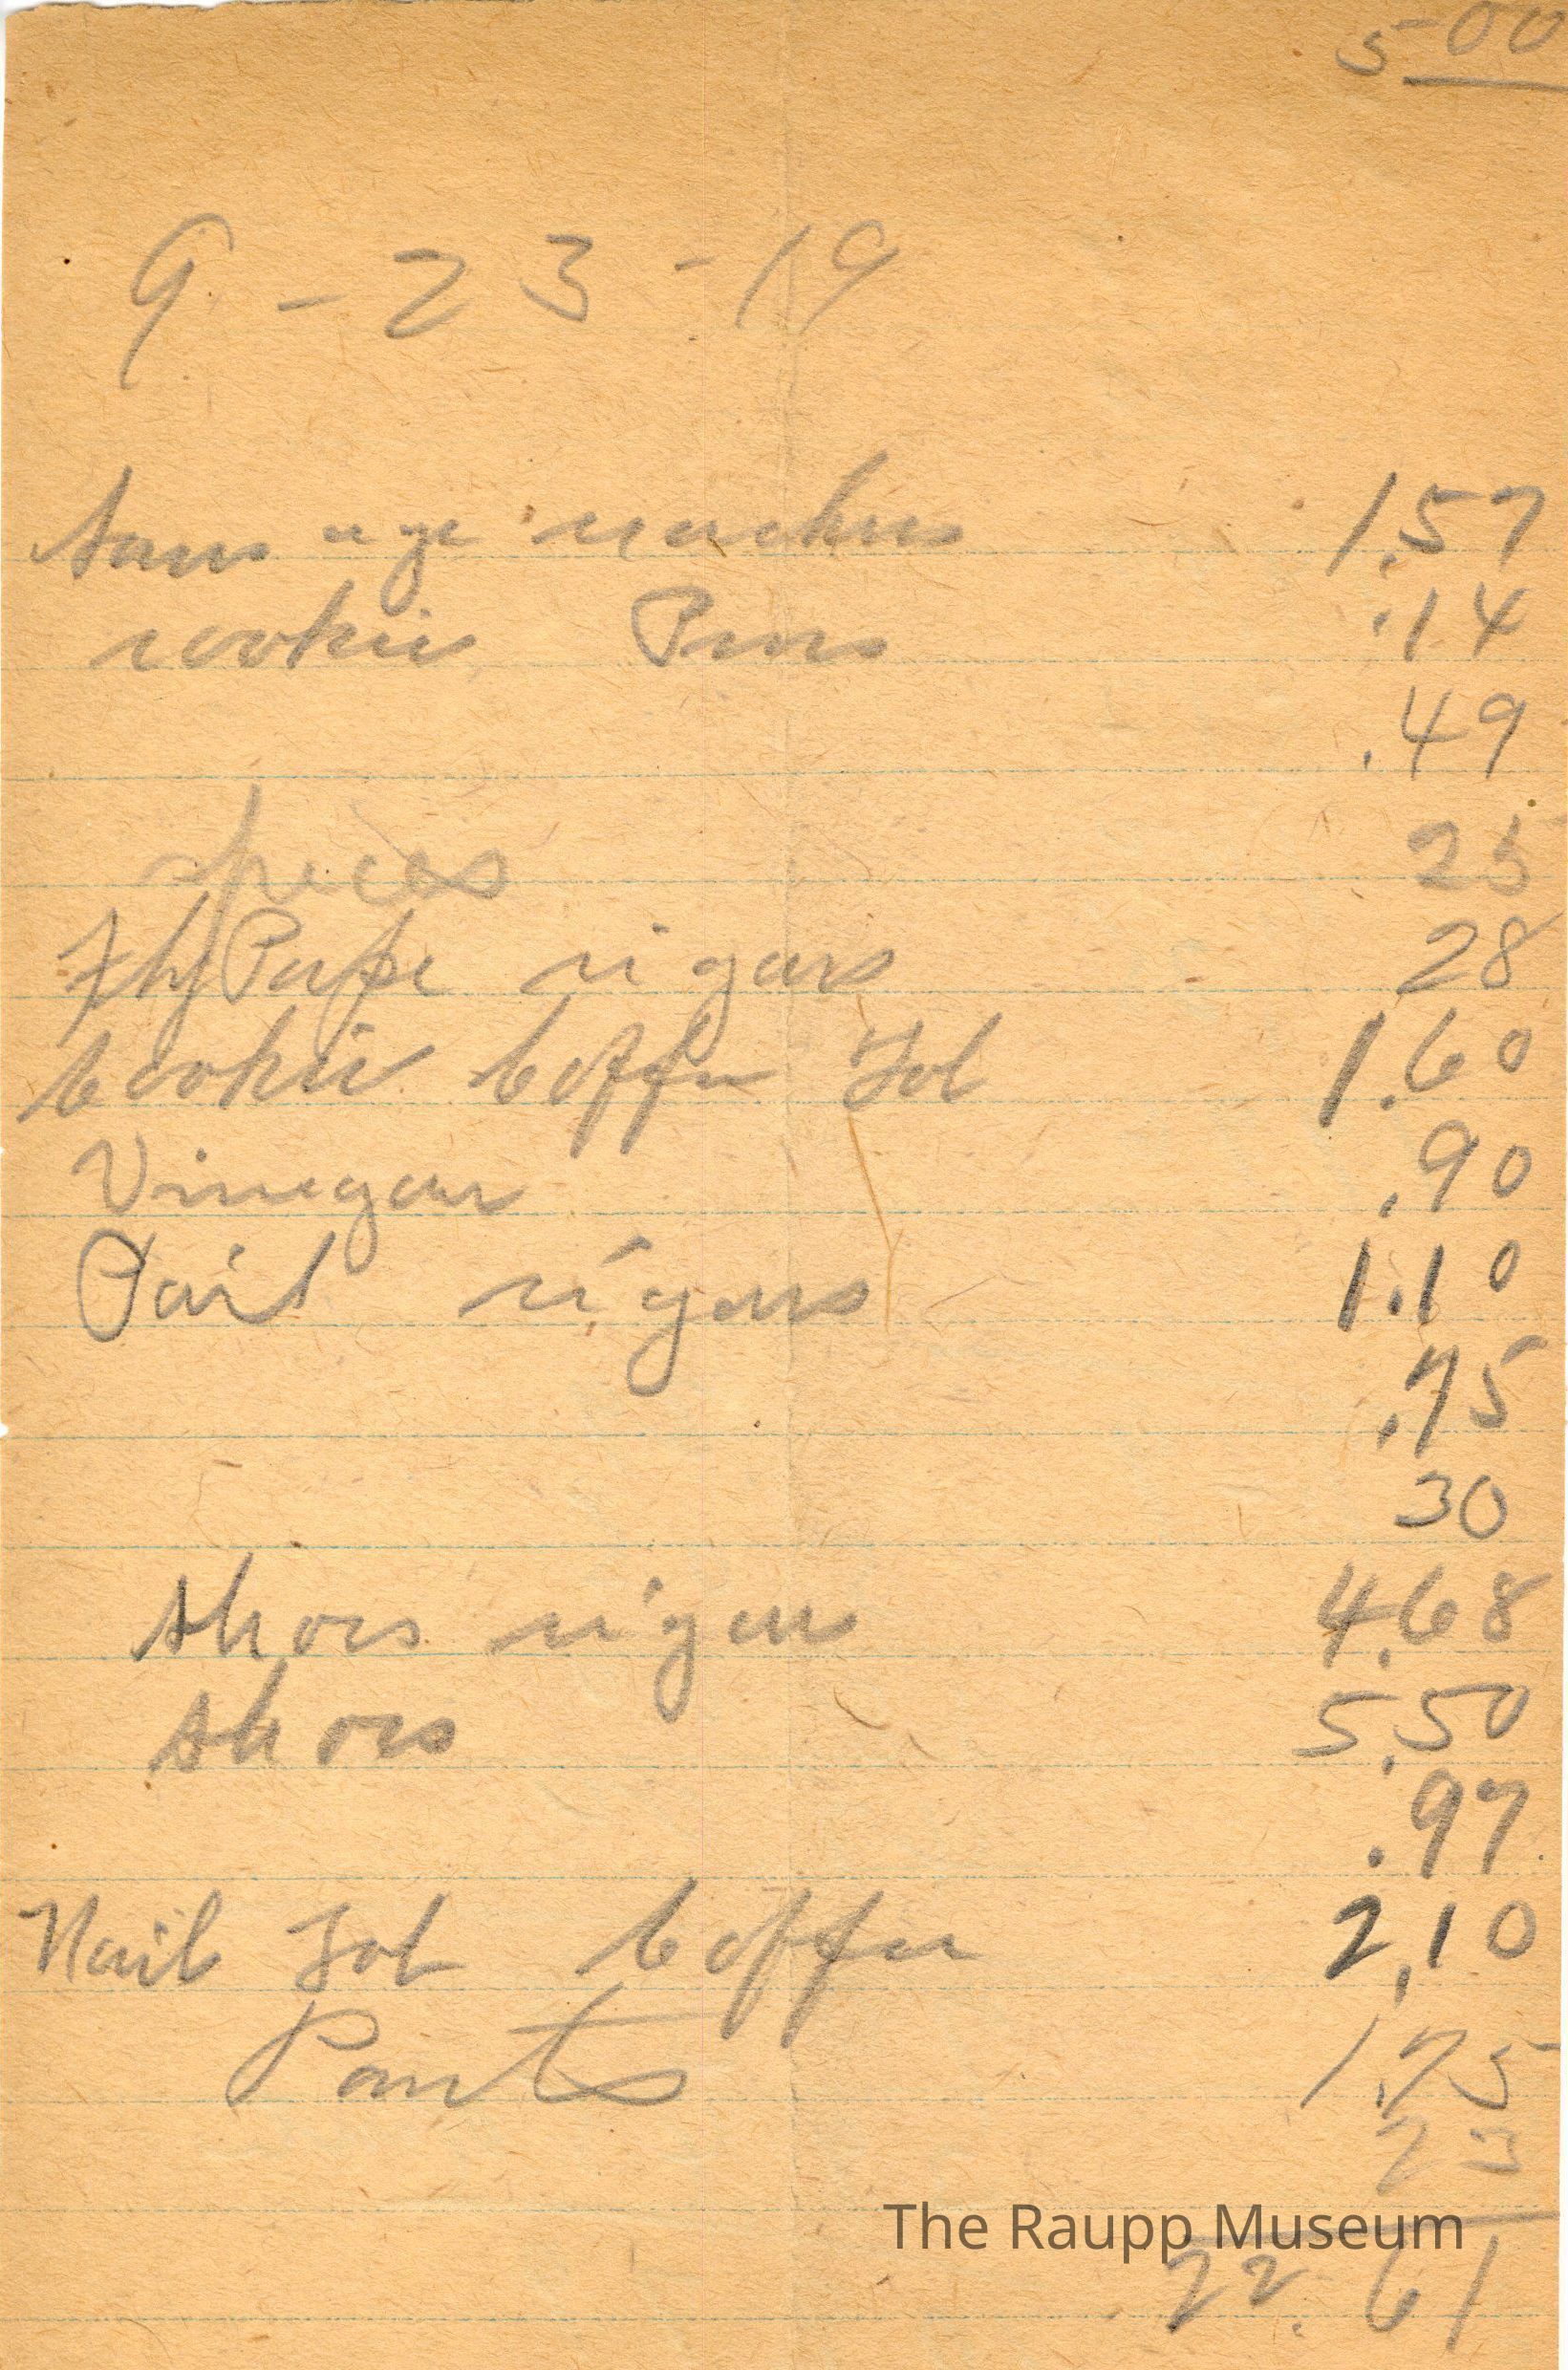 5-00
9-23-19
Sausage crackers 1.57
cookie Pens .14
.49
spices 25
Fly Pape cigars 28
Cookie Coffee Tob 1.60
Vinegar .90
Pail cigars 1.10
.75
30
Shoes cigars 4.68
Shoes 5.50
.97
Nail Tob Coffee 2.10
Pants 1.75
23
The Raupp Museum
22.61